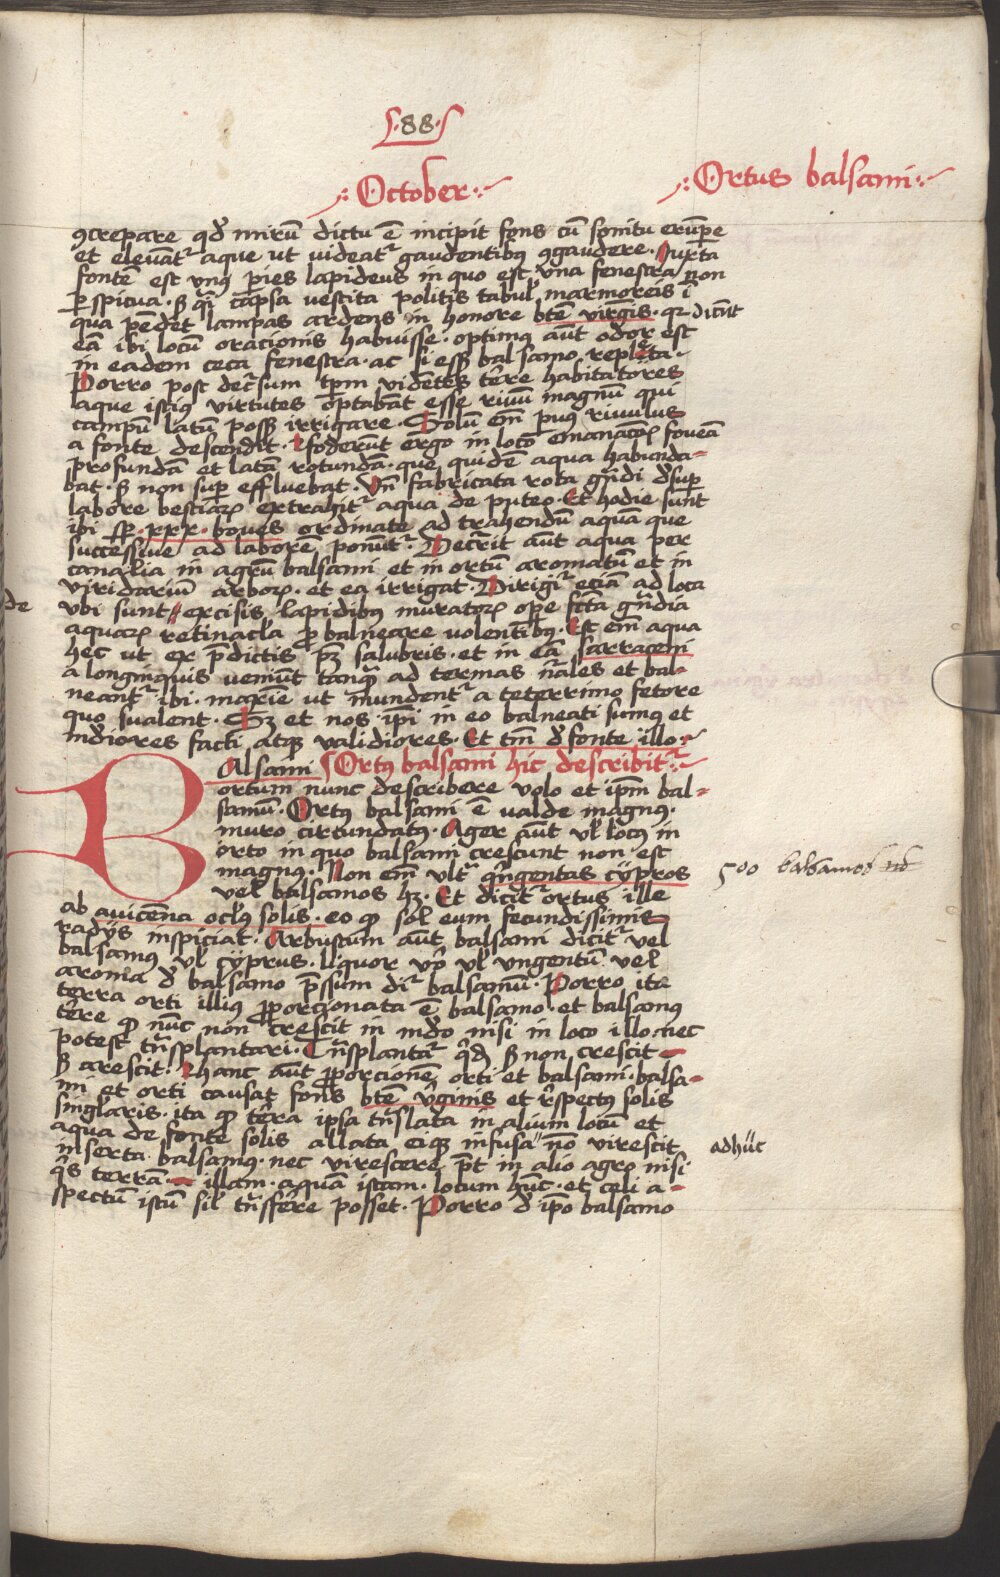 88
October
Ortus balsami
ꝯcrepare qd' mirū dictu ē incipit fons cū sonitu erūpe
et eleuāt' aque ut uideat' gaudentibꝰ ꝯgaudere. Juxta
fontē est vnꝰ pies lapideus in quo est vna fenestra non
pspicua. sꝫ qi capsa vestita politis tabul' marmoreis ī
qua pēdet lampas ardens in honore btē virgīs. qꝛ dicūt
eā ibi locū oracionis habuisse. optimꝰ aūt odor est
in eadem ceca fenestra. ac si essꝫ balsamo repleta.
Porro post decsum tpm videntes tēre habitatores
aque istiꝰ virtutes optabāt esse riuū magnū qui
campū latū possꝫ irrigare. Solū em̄ puꝰ riuulus
a fonte descendit. Effoderūt ergo in loco emanacōꝝ foueā
profundā et latā rotundā. que quidē aqua habunda-
bat. sꝫ non sup effluebat. Vn̄ fabricata rota gn̄di d'sup
labore bestiaꝝ extrahit' aqua de puteo. Et hodie sunt
ibi sp. xxx. boues ordinate ad trahendū aquā que
successiue ad laborē ponūt'. Decrīt aūt aqua per
canalia in agrū balsami et in ortū aromatū et in
viridariū arboꝝ. et ea irrigat. Dirigit' eciam ad loca
vbi sunt excisis lapidibꝰ muratoꝝ ope fcta gn̄dia
aquaꝝ retinacl'a ꝓ balneare volentibꝰ. Est em̄ aqua
hec ut ex p̄dictis pꝫ salubris. et in eā sarraceni
a longinquis veniūt tanqꝫ ad termas n̄ales et bal-
neant' ibi. maxime ut mundent' a teterrimo fetore
quo sualent. Sꝫ et nos ipī in eo balneati sumꝰ et
mūdiores facti atqꝫ validiores. Et tm̄ d' fonte illo.
BAlsami Ortꝰ balsami hic describit'
ortum nunc describere volo et ipm̄ bal-
samū. Ortꝰ balsami ē valde magnꝰ.
muro circundatꝰ. Ager aūt vl' locꝰ in
orto in quo balsami crescunt non est
magnꝰ. Non em̄ ult' qngentas cypros
vel' balsamos hꝫ. Et dicit' ortus ille
500 balsamos
ab auicenna ocl'ꝰ solis. eo ꝙ sol eum fecundissimis
radijs inspiciat. Arbustum aūt balsami dicit' vel
balsamꝰ vl' cyprus. liquor vo vl' vngentū vel
aroma d' balsamo p̄ssum dic' balsamū. Porro ita
terra orti illiꝰ ꝓporcionata ē balsamo. et balsamꝰ
tēre ꝙ nūc non crescit in mūdo nisi in loco illo. nec
potest tn̄splantari. Tn̄splantat' qd sꝫ non crescit
sꝫ arescit. Hanc aūt ꝓporcionē orti et balsami. balsa-
mi et orti causat fons btē v'ginis et rspectꝰ solis
singl'aris. ita ꝙ terra ipsa tn̄slata in alium locū et
aqua de fonte solis allata eiqꝫ infusa no virescit
adhuc
inserta balsamꝰ. nec virescere p̄t in alio agro nisi
qs terrā illam. aquā istam. locum hūc. et celi a-
spectū istū sil' tn̄sferre posset. Porro d' ipō balsamo